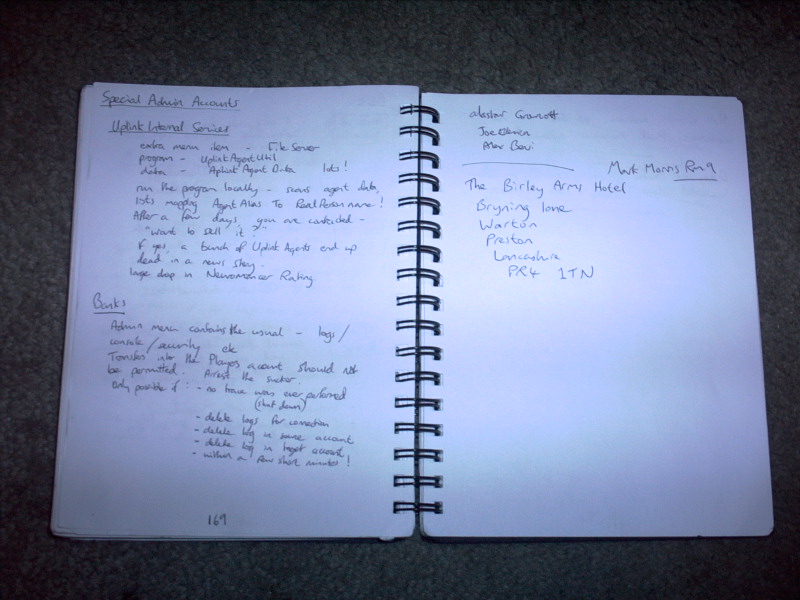 Special Admin Accounts
Uplink Internal Services
extra menu item - File Server
program - Uplink Agent Util
data - Aplink Agent Data lots!
run the program locally - scans agent data,
lists mapping Agent Alias To Real Person name!
After a few days, you are contacted -
"want to sell it?"
If yes, a bunch of Uplink Agents end up
dead in a news story.
large drop in Neuromancer Rating
Banks
Admin menu contains the usual - logs/
console/security etc
Transfers into the Players account should not
be permitted. Arrest the sucker.
Only possible if: - no trace was ever performed
(shut down)
- delete logs for connection
- delete log in source account
- delete log in target account
- within a few short minutes!
169
alastair
Joe
Alex
Mark Morris Rm 9
The Birley Arms Hotel
Bryning lane
Warton
Preston
Lancashire
PR4 1TN